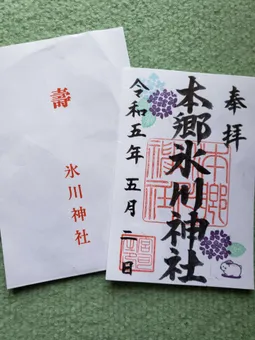 壽
氷川神社
奉拝
本郷氷川神社
令和五年五月二日
本郷氷川神社